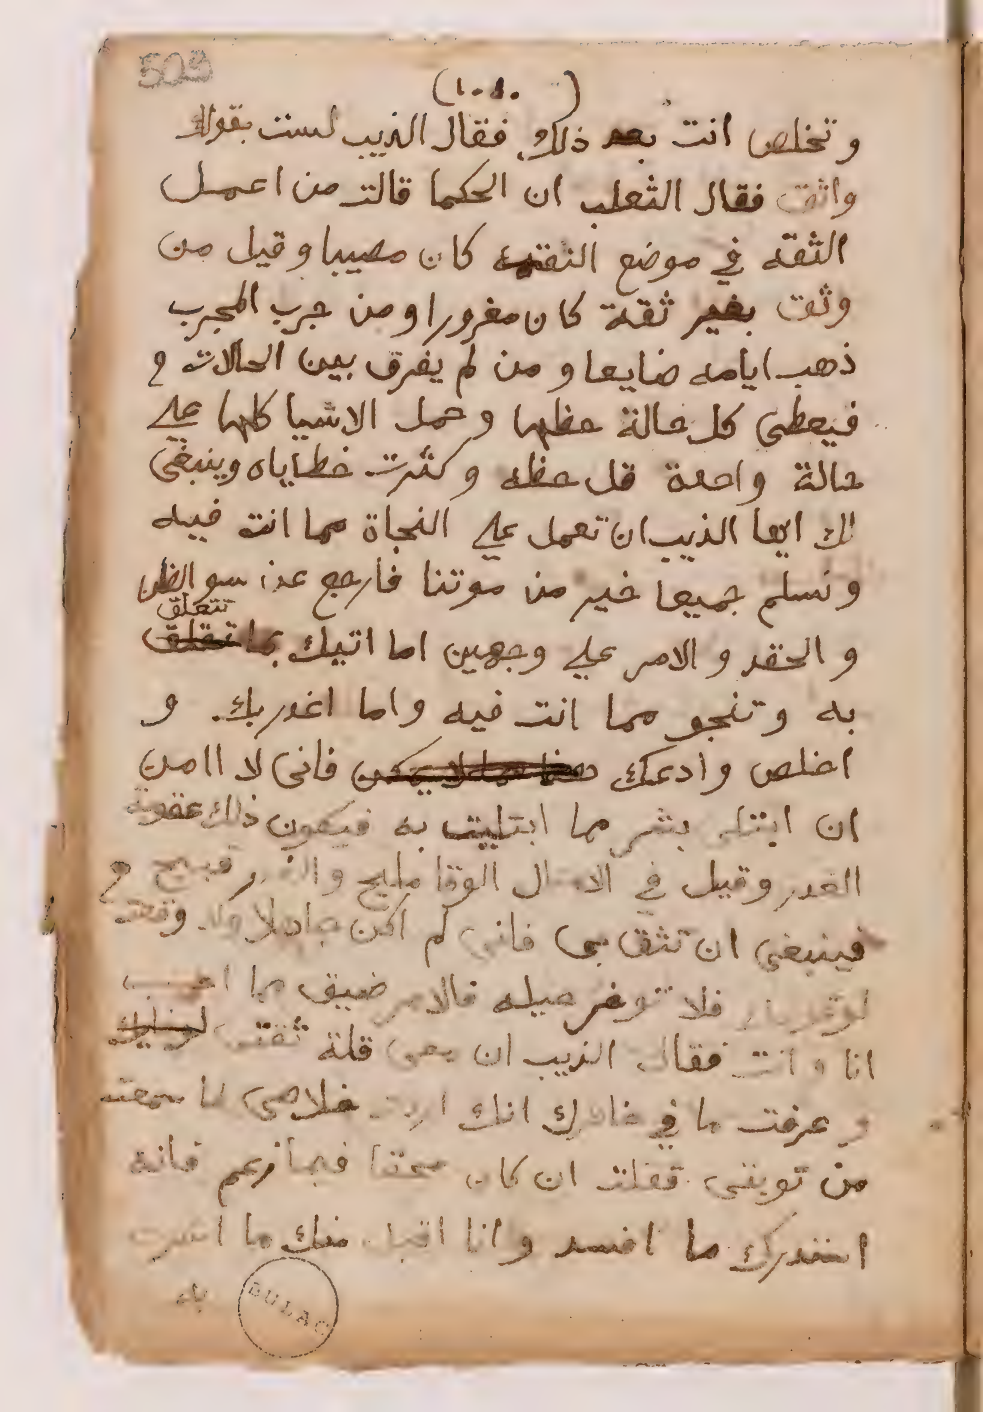 509
(١٠١٠)
وتخلص انت بعد ذلك فقال الذيب لست بقولك
واثق فقال الثعلب ان الحكما قالت من اعمل
الثقه في موضع الثقه كان مصيبا وقيل من
وثق بغير ثقة كان مغرورا ومن جرب المجرب
ذهب ايامه ضايعا ومن لم يفرق بين الحالات و
فيعطى كل حالة حظها وحمل الاشيا كلها علي
حالة واحدة قل حظه وكثرت خطاياه وينبغى
لك ايها الذيب ان تعمل علي النجاة مما انت فيه
ونسلم جميعا خير من موتنا فارجع عن سو الظن
تتعلق
والحقد والامر علي وجهين اما اتيك بما تقلق
به وتنجو مما انت فيه واما اغدر بك. و
اخلص وادعك فانى لا اامن
ان ابتلى بشر مما ابتليت به فيكون ذلك عقوبة
الغدر وقيل في الامثال الوفا مليح والغدر قبيح و
فينبغى ان تثق بى فانى لم اكن جاهلا وقعت
فلا توخر حيله فالامر ضيق مما احسب
انا وانت فقال الذيب ان معى قلة ثقتى
وعرفت ما في خاطرك انك اردت خلاصى لما سمعت
من توبتى فقلت ان كان محقا فيما زعم فانه
استدرك ما افسد وانا اقبل منك ما اشرت
به
BULAC